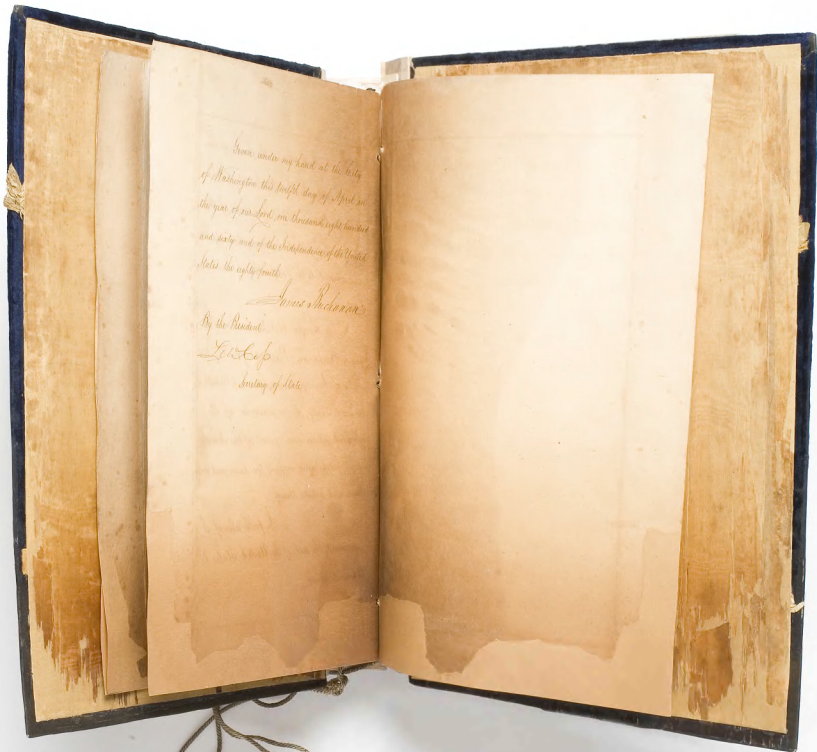 Given under my hand at the City
of Washington this twelfth day of April in
the year of our Lord, one thousand eight hundred
and sixty and of the Independence of the United
States the eighty fourth.
James Buchanan
By the President
Lew Cass
Secretary of State